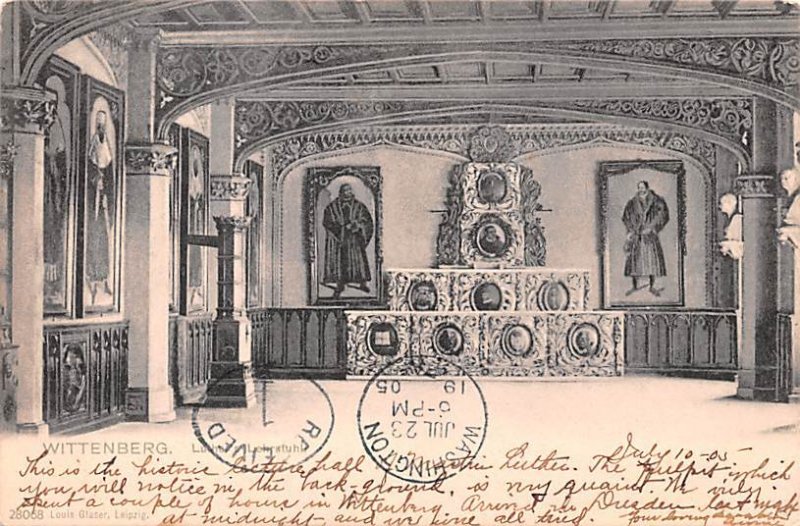 WITTENBERG. Luther's Lehrstuhl
RECEIVED
WASHINGTON
JUL 23
6-PM
19 05
July 10-05
This is the historic lecture hall of Martin Luther. The pulpit, which
you will notice in the back-ground, is very quaint. We only
spent a couple of hours in Wittenberg. Arrived in Dresden last night
at midnight and we were all tired
28068 Louis Glaser, Leipzig.